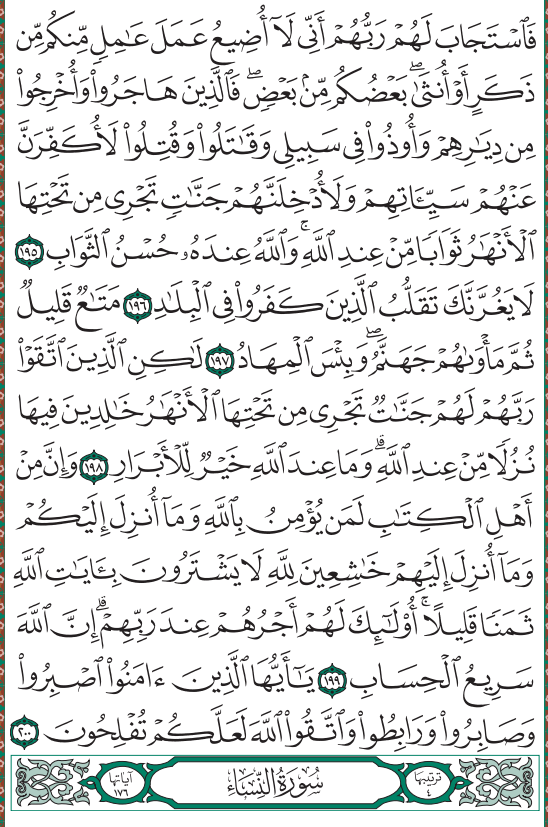 فَٱسۡتَجَابَ لَهُمۡ رَبُّهُمۡ أَنِّي لَآ أُضِيعُ عَمَلَ عَٰمِلٖ مِّنكُم مِّن
ذَكَرٍ أَوۡ أُنثَىٰۖ بَعۡضُكُم مِّنۢ بَعۡضٖۖ فَٱلَّذِينَ هَاجَرُواْ وَأُخۡرِجُواْ
مِن دِيَٰرِهِمۡ وَأُوذُواْ فِي سَبِيلِي وَقَٰتَلُواْ وَقُتِلُواْ لَأُكَفِّرَنَّ
عَنۡهُمۡ سَيِّـَٔاتِهِمۡ وَلَأُدۡخِلَنَّهُمۡ جَنَّٰتٖ تَجۡرِي مِن تَحۡتِهَا
ٱلۡأَنۡهَٰرُ ثَوَابٗا مِّنۡ عِندِ ٱللَّهِۚ وَٱللَّهُ عِندَهُۥ حُسۡنُ ٱلثَّوَابِ ١٩٥
لَا يَغُرَّنَّكَ تَقَلُّبُ ٱلَّذِينَ كَفَرُواْ فِي ٱلۡبِلَٰدِ ١٩٦ مَتَٰعٞ قَلِيلٞ
ثُمَّ مَأۡوَىٰهُمۡ جَهَنَّمُۖ وَبِئۡسَ ٱلۡمِهَادُ ١٩٧ لَٰكِنِ ٱلَّذِينَ ٱتَّقَوۡاْ
رَبَّهُمۡ لَهُمۡ جَنَّٰتٞ تَجۡرِي مِن تَحۡتِهَا ٱلۡأَنۡهَٰرُ خَٰلِدِينَ فِيهَا
نُزُلٗا مِّنۡ عِندِ ٱللَّهِۗ وَمَا عِندَ ٱللَّهِ خَيۡرٞ لِّلۡأَبۡرَارِ ١٩٨ وَإِنَّ مِنۡ
أَهۡلِ ٱلۡكِتَٰبِ لَمَن يُؤۡمِنُ بِٱللَّهِ وَمَآ أُنزِلَ إِلَيۡكُمۡ
وَمَآ أُنزِلَ إِلَيۡهِمۡ خَٰشِعِينَ لِلَّهِ لَا يَشۡتَرُونَ بِـَٔايَٰتِ ٱللَّهِ
ثَمَنٗا قَلِيلًاۚ أُوْلَٰٓئِكَ لَهُمۡ أَجۡرُهُمۡ عِندَ رَبِّهِمۡۗ إِنَّ ٱللَّهَ
سَرِيعُ ٱلۡحِسَابِ ١٩٩ يَٰٓأَيُّهَا ٱلَّذِينَ ءَامَنُواْ ٱصۡبِرُواْ
وَصَابِرُواْ وَرَابِطُواْ وَٱتَّقُواْ ٱللَّهَ لَعَلَّكُمۡ تُفۡلِحُونَ ٢٠٠
ترتيبها ٤ سُورَةُ النِّسَاءِ آياتها ١٧٦